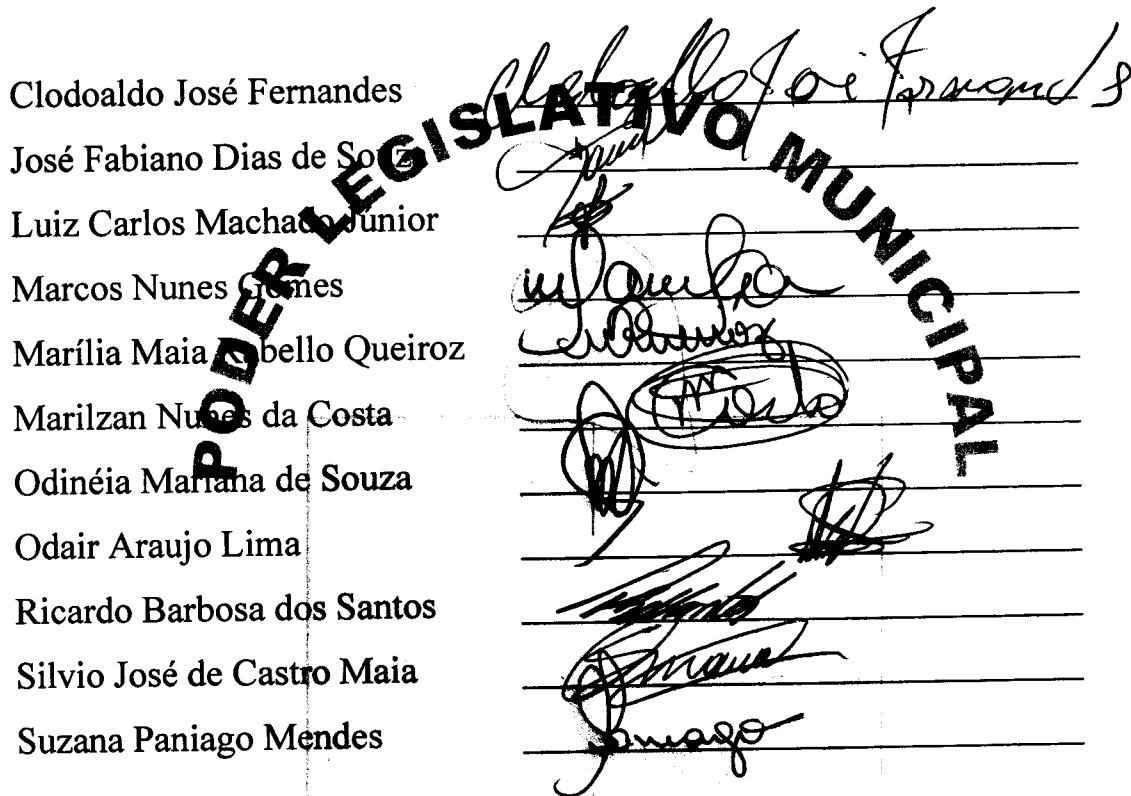 Clodoaldo José Fernandes Clodoaldo José Fernandes
José Fabiano Dias de Souza
Luiz Carlos Machado Júnior
Marcos Nunes Gomes
Marília Maia Rabello Queiroz
Marilzan Nunes da Costa
Odinéia Mariana de Souza
Odair Araujo Lima
Ricardo Barbosa dos Santos
Silvio José de Castro Maia
Suzana Paniago Mendes
PODER LEGISLATIVO MUNICIPAL